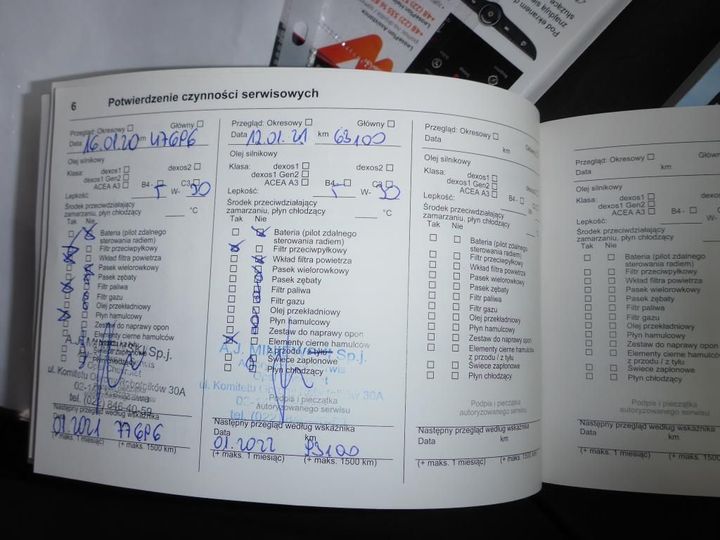 6 Potwierdzenie czynności serwisowych
Przegląd: Okresowy Główny
Data 16.01.20 km 47696
Olej silnikowy
Klasa: dexos1 dexos2
dexos1 Gen2
ACEA A3 B4- C3
Lepkość: 5 W- 30
Środek przeciwdziałający
zamarzaniu, płyn chłodzący °C
Tak Nie
Bateria (pilot zdalnego
sterowania radiem)
Filtr przeciwpyłkowy
Wkład filtra powietrza
Pasek wielorowkowy
Pasek zębaty
Filtr paliwa
Filtr gazu
Olej przekładniowy
Płyn hamulcowy
Zestaw do naprawy opon
Elementy cierne hamulców
Świece zapłonowe
A.J. Sp.j.
ul. Komitetu 30A
tel. (022) 846-40-59
Następny przegląd według wskaźnika
Data km
01.2021 77696
(+ maks. 1 miesiąc) (+ maks. 1500 km)
Przegląd: Okresowy Główny
Data 12.01.21 km 63100
Olej silnikowy
Klasa: dexos1 dexos2
dexos1 Gen2
ACEA A3 B4- C3
Lepkość: 5 W- 30
Środek przeciwdziałający
zamarzaniu, płyn chłodzący °C
Tak Nie
Bateria (pilot zdalnego
sterowania radiem)
Filtr przeciwpyłkowy
Wkład filtra powietrza
Pasek wielorowkowy
Pasek zębaty
Filtr paliwa
Filtr gazu
Olej przekładniowy
Płyn hamulcowy
Zestaw do naprawy opon
Elementy cierne hamulców
z przodu
Świece zapłonowe
Płyn chłodzący
A.J. Sp.j.
ul. Komitetu 30A
tel. (022)
Podpis i pieczątka
autoryzowanego serwisu
Następny przegląd według wskaźnika
Data km
01.2022 93100
(+ maks. 1 miesiąc) (+ maks. 1500 km)
Przegląd: Okresowy Główny
Data km
Olej silnikowy
Klasa: dexos1 dexos2
dexos1 Gen2
ACEA A3 B4- C3
Lepkość: W-
Środek przeciwdziałający
zamarzaniu, płyn chłodzący °C
Tak Nie
Bateria (pilot zdalnego
sterowania radiem)
Filtr przeciwpyłkowy
Wkład filtra powietrza
Pasek wielorowkowy
Pasek zębaty
Filtr paliwa
Filtr gazu
Olej przekładniowy
Płyn hamulcowy
Zestaw do naprawy opon
Elementy cierne hamulców
z przodu / z tyłu
Świece zapłonowe
Płyn chłodzący
Podpis i pieczątka
autoryzowanego serwisu
Następny przegląd według wskaźnika
Data km
(+ maks. 1 miesiąc) (+ maks. 1500 km)
Przegląd: Okresowy
Data km
Olej silnikowy
Klasa: dexos1
dexos1 Gen2
ACEA A3 B4-
Lepkość:
Środek przeciwdziałający
zamarzaniu, płyn chłodzący
Tak Nie
Bateria (pilot zdalnego
sterowania radiem)
Filtr przeciwpyłkowy
Wkład filtra powietrza
Pasek wielorowkowy
Pasek zębaty
Filtr paliwa
Filtr gazu
Olej przekładniowy
Płyn hamulcowy
Zestaw do naprawy opon
Elementy cierne hamulców
z przodu / z tyłu
Świece zapłonowe
Płyn chłodzący
Podpis i pieczątka
autoryzowanego serwisu
Następny przegląd według wskaźnika
Data km
(+ maks. 1 miesiąc) (+ maks. 1500 km)